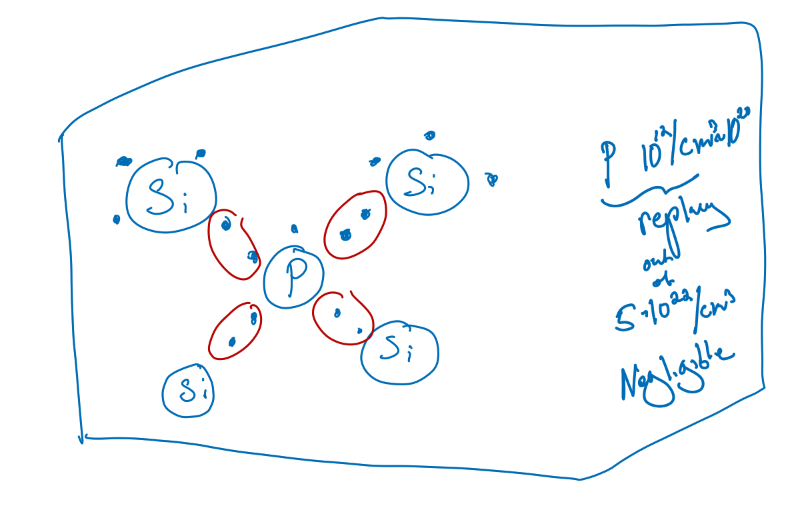 Si
Si
P
Si
Si
P 10¹²/cm³ 10²⁰
replacing
out
of
5·10²²/cm³
Negligible